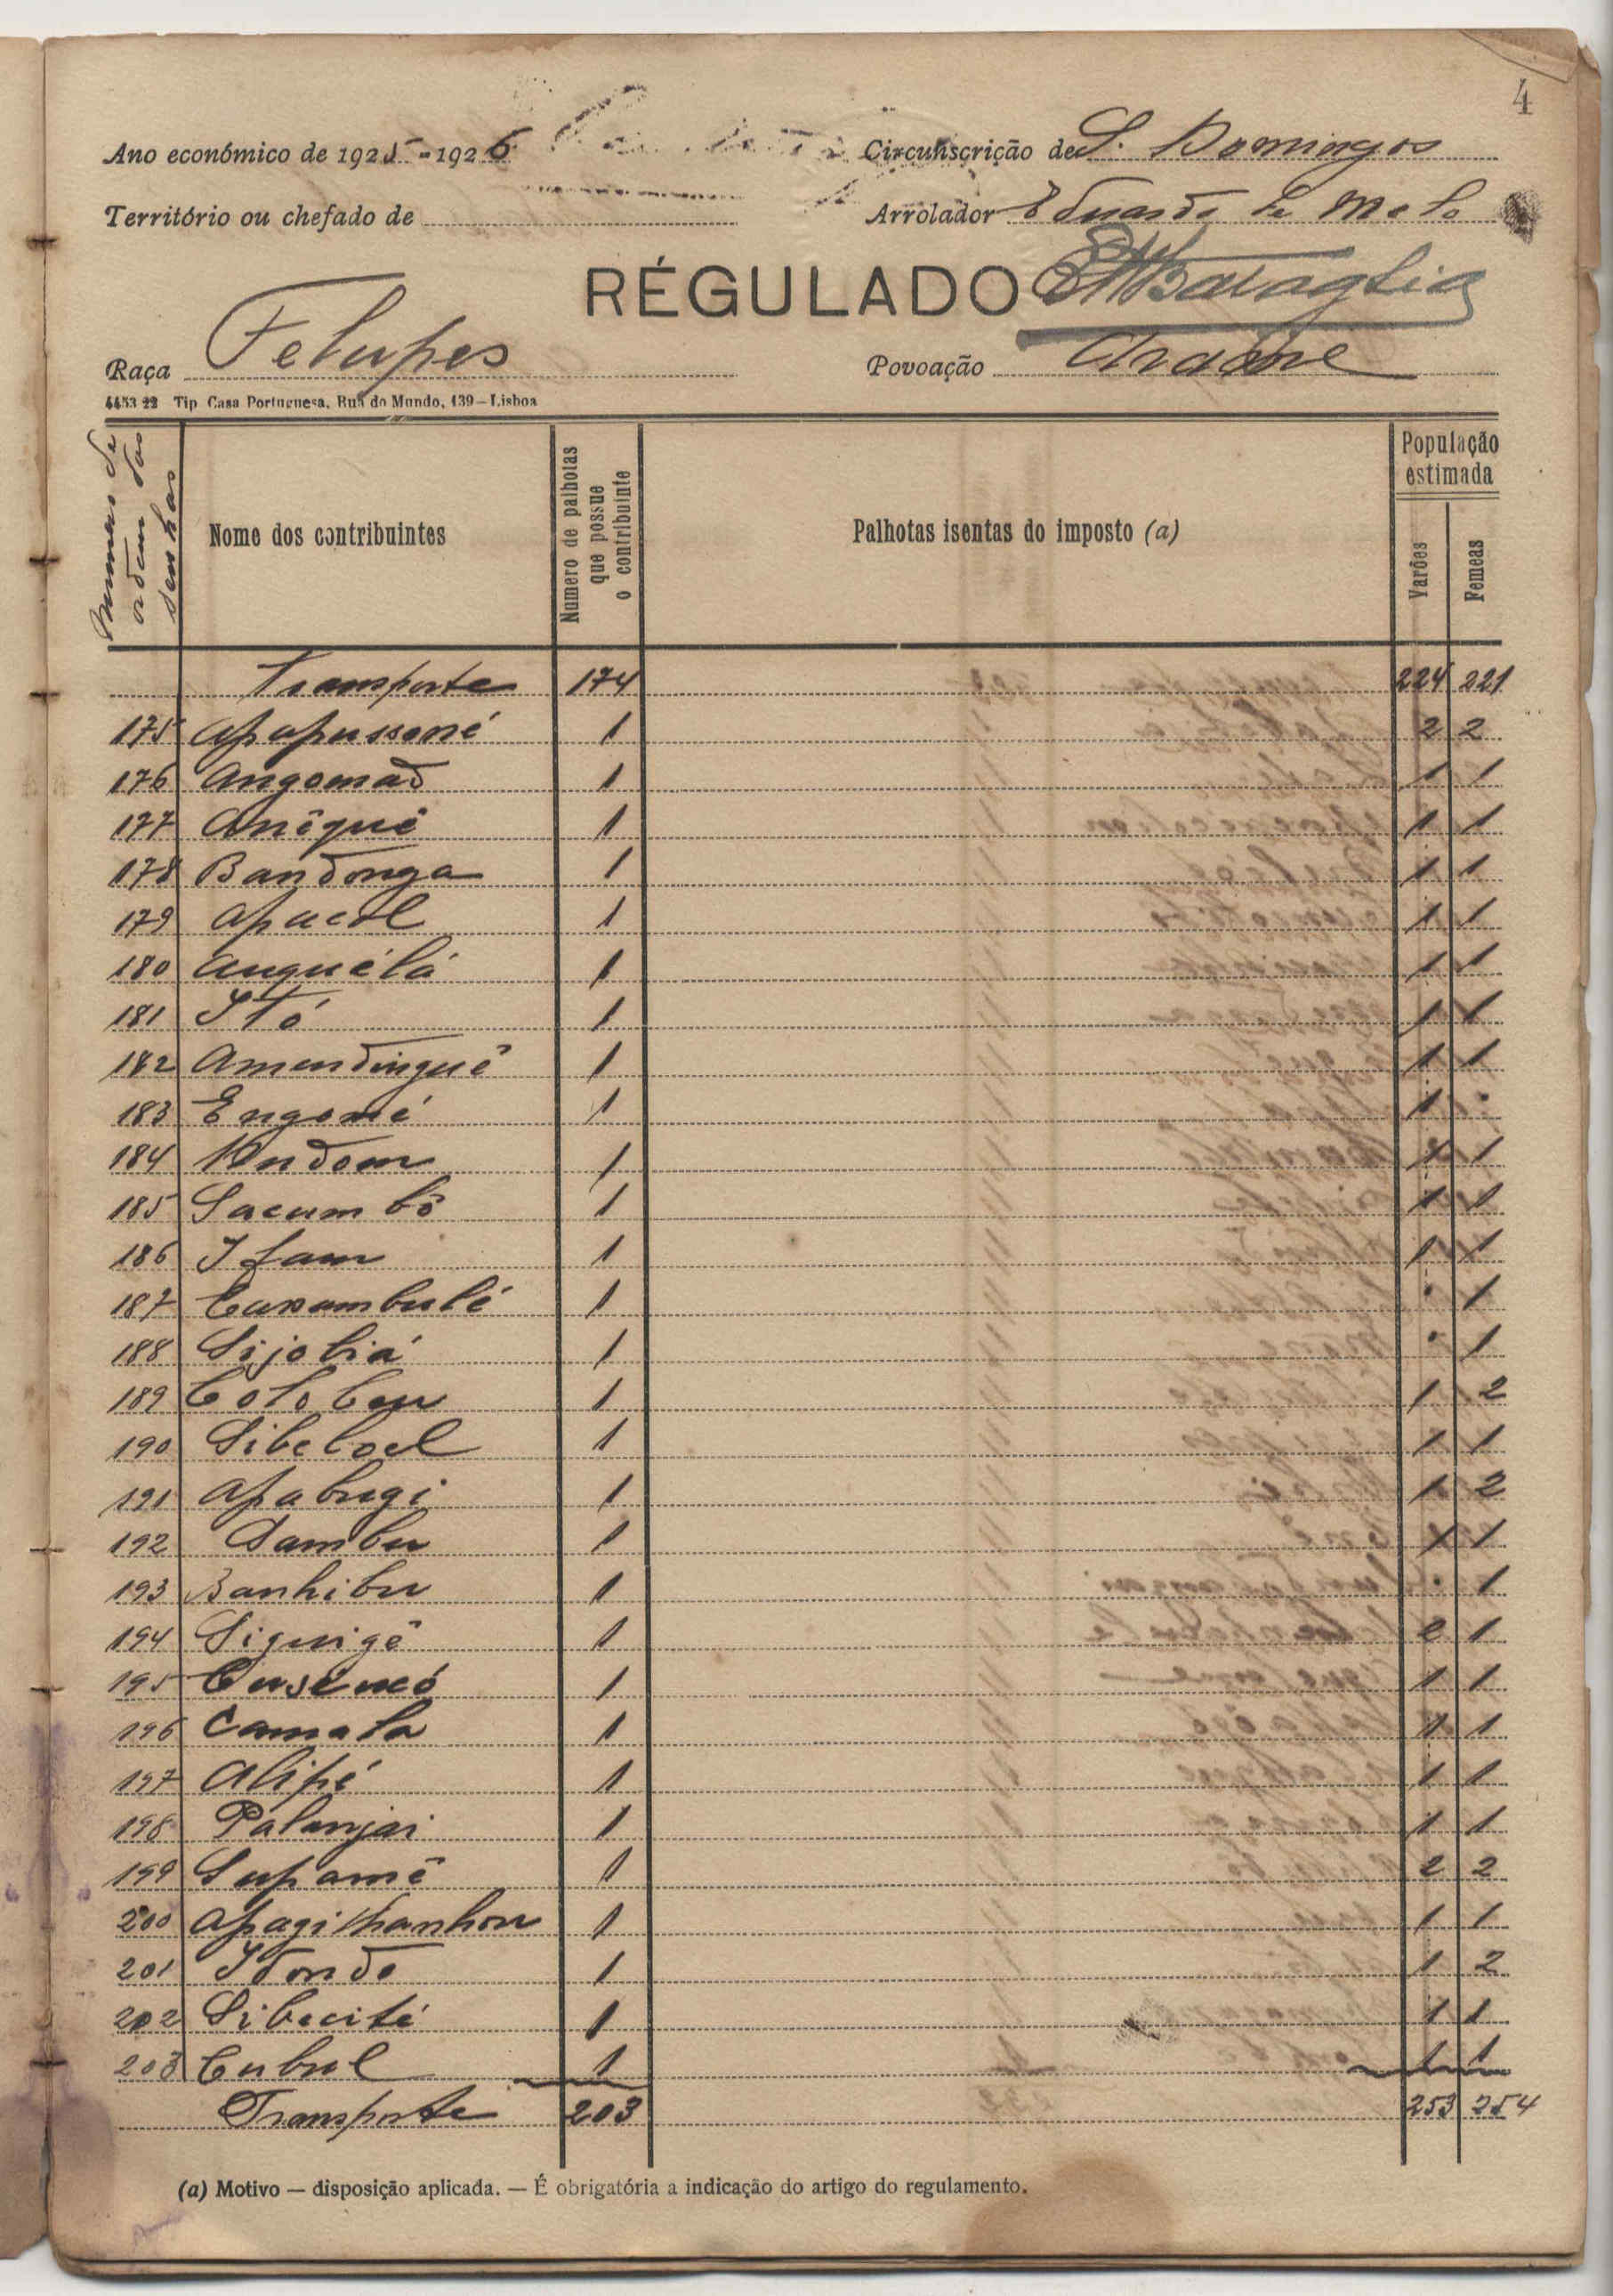 4
Ano económico de 1925-1926 Circunscrição de S. Domingos
Território ou chefado de Arrolador Eduardo de Melo
RÉGULADO
Raça Felupes Povoação Arame
4453 22 Tip Casa Portuguesa, Rua do Mundo, 139—Lisboa
Numeros de ordem das senhas Nome dos contribuintes Numero de palhotas que possue o contribuinte Palhotas isentas do imposto (a) População estimada Varões Femeas
Transporte 174 224 221
175 Apapussané 1 2 2
176 Angomad 1 1 1
177 Anêquê 1 1 1
178 Bandonga 1 1 1
179 Apucol 1 1 1
180 Auguélá 1 1 1
181 Itó 1 1 1
182 Amendinguê 1 1 1
183 Engomé 1 1 "
184 Undom 1 1 1
185 Sacumbô 1 1 1
186 Ifam 1 1 1
187 Caxambulé 1 " 1
188 Sijobiá 1 " 1
189 Colobeu 1 1 2
190 Sibeloel 1 1 1
191 Apabugi 1 1 2
192 Dambu 1 1 1
193 Banhibu 1 " 1
194 Siguigê 1 2 1
195 1 1 1
196 Camala 1 1 1
197 Alipé 1 1 1
198 Palunjai 1 1 1
199 Supamê 1 2 2
200 1 1 1
201 Itondo 1 1 2
202 Sibecité 1 1 1
203 Cubul 1 1 1
Transporte 203 253 254
(a) Motivo — disposição aplicada. — É obrigatória a indicação do artigo do regulamento.